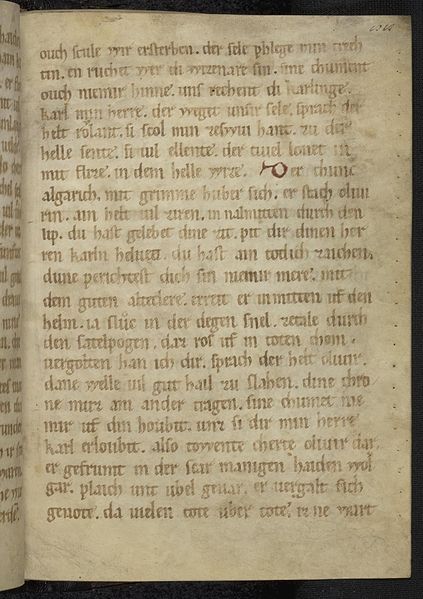 ouch scule wir ersterben. der sele phlege min trech
tin. en ruͦchet wer di wizenare sin. sine chument
ouch niemir hinne. uns rechent di karlinge.
karl min herre. der weget unsir sele. sprach der
helt rolant. si scol min zeswiu hant. zu der
helle sente. si vil ellente. der tiuel lonet in
mit fiure. in dem helle wize. Der chunc
algarich. mit grimme huber sich. er stach oliui
rin. ain helt vil zieren. in almitten durch den
lip. du hast gelebet dine zit. pit dir dinen her
ren karln helven. du hast ain totlich zaichen.
dune perichtest dich sin niemir mere. mit
dem guten alteclere. erreit er in mitten uf den
helm. ia sluͦc in der degen snel. zetale durch
den satelpogen. daz ros uf in toten chom.
vergolten han ich dir. sprach der helt oliuir.
dane welle vil gut hail zu slahen. dine chro
ne muz ain ander tragen. sine chumet nie
mir uf din houbit. unz si dir min herre
karl erloubit. also toͮwente cherte oliuir dar.
er gefrumt in der scar manigen haiden wol
gar. plaich unt ubel geuar. er vergalt sich
genote. da vielen tote uber tote. iz ne wart